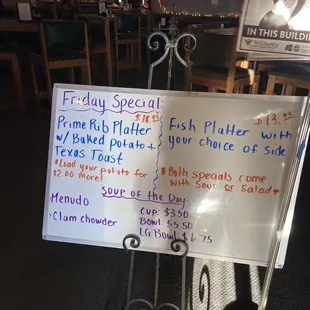 IN THIS BUILDING
Friday Special:
Prime Rib Platter
w/ Baked potato +
Texas Toast
*Load your potato for
$2.00 more!
Fish Platter with
your choice of side
* Both specials come
with Soup or Salad*
Soup of the Day:
·Menudo
·Clam chowder
Cup: $3.50
Bowl: $5.50
LG Bowl: $6.75